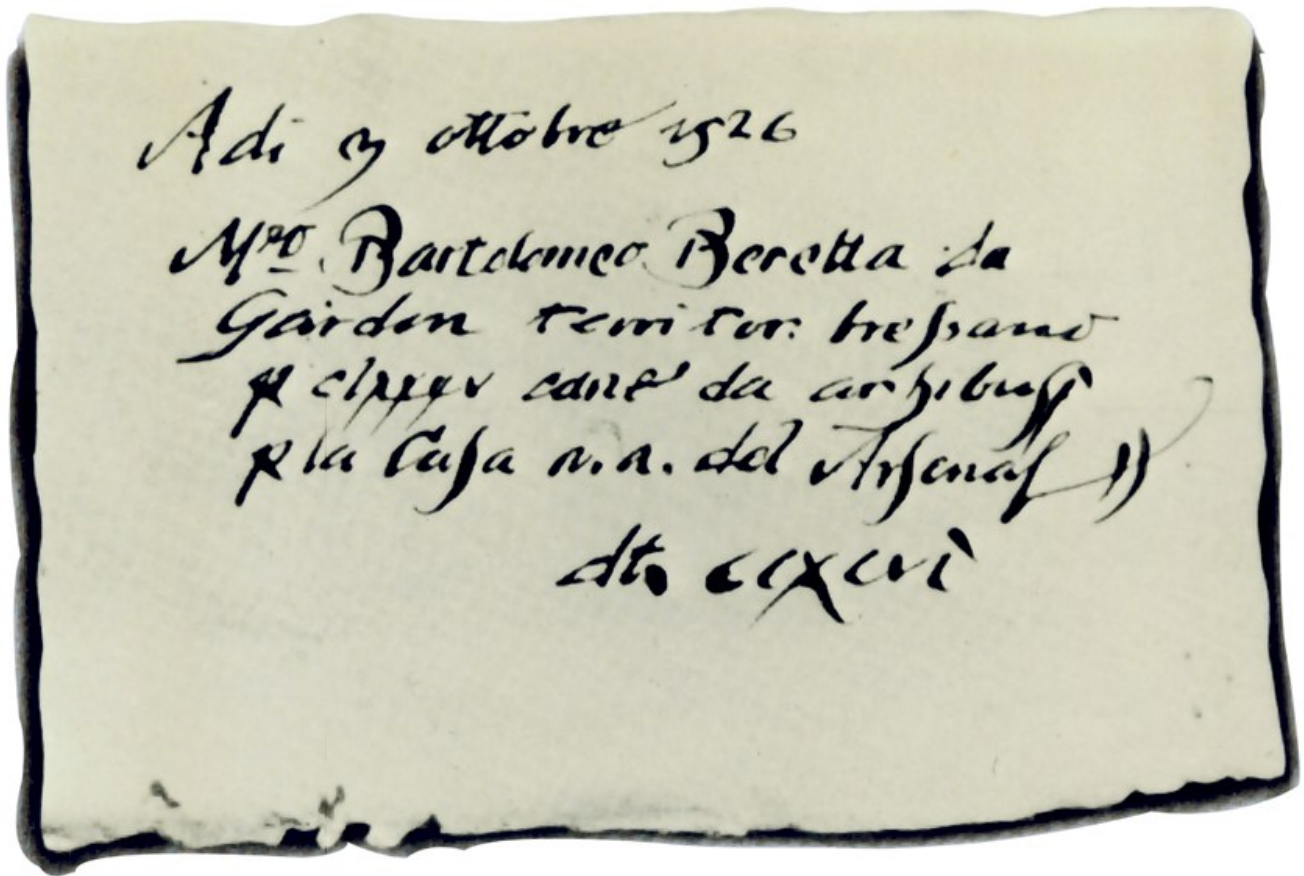 Adi 3 ottobre 1526
Mro. Bartolomeo Beretta da
Gardon territor: bressano
p clxxxv cane da archibusi
p la Casa n.n. del Arsenal
dti ccxcvi